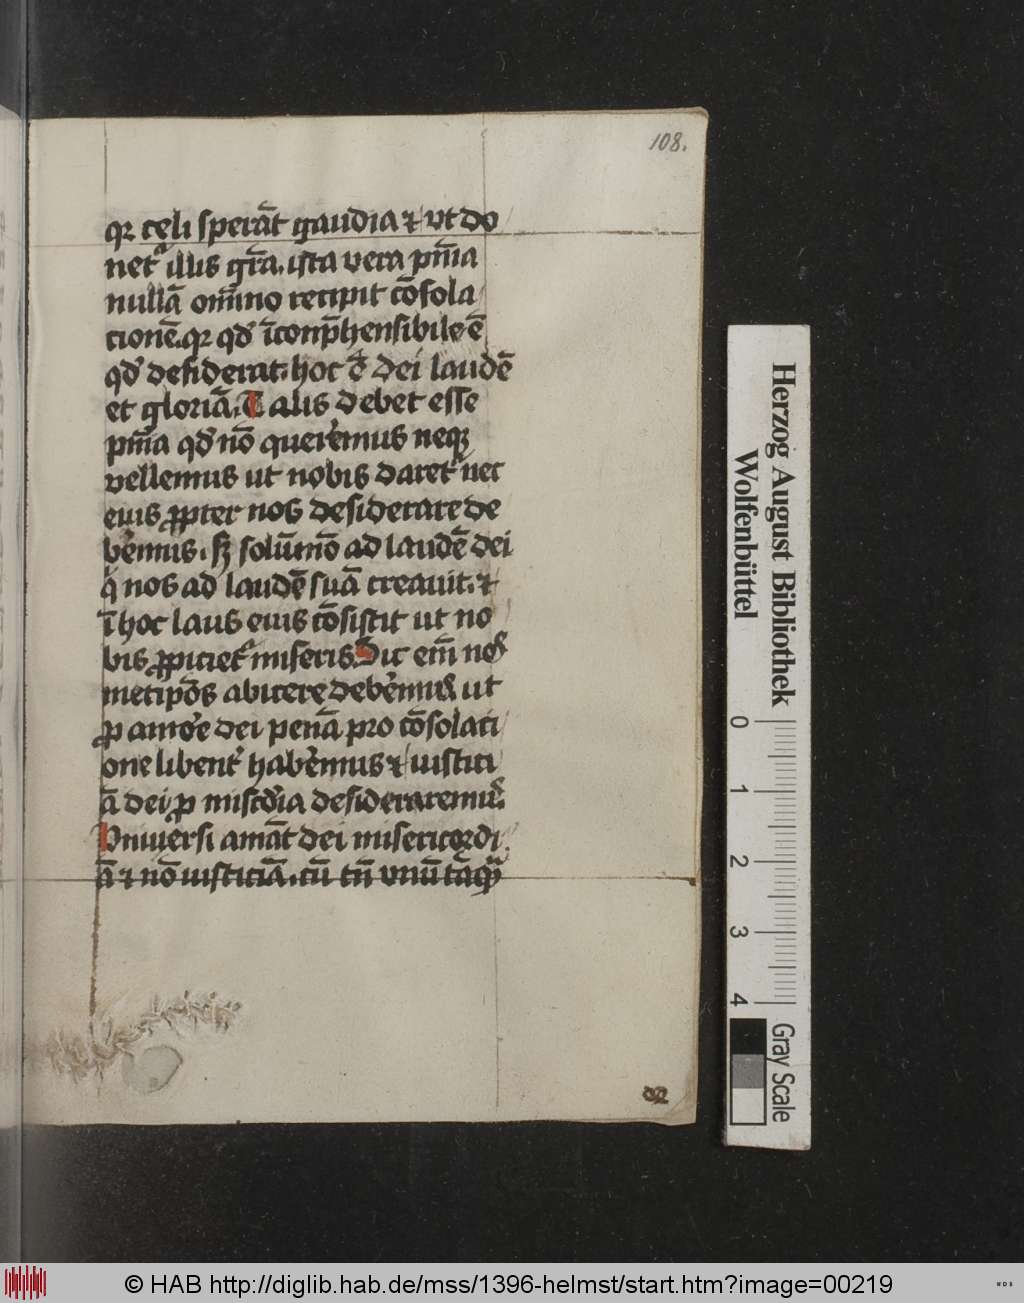 108.
qr celi sperāt gaudia ⁊ vt do
netᵃ illis gr̄a. ista vera pn̄ia
nullā om̄ino recipit cōsola
cionē. qr qd' īconp̄hensibile ē
qd' desiderat. hoc ē dei laudē
et gloriā. Talis debet esse
pn̄ia qd' nō querem' mus neqꝫ
vellemus ut nobis daret' nec
eius ꝓpter nos desiderare de
bem'mus. sꝫ solū̄mō ad laudē dei
q̇ nos ad laudē suā creauit. ⁊
ī hoc laus eius cōsistit ut no
bis ꝓpiciet' miseris. Sic em̄ nos
metip̄os abicere deb'emus ut
ꝓ amor'e dei penā pro cōsolati
one libent' hab'emus ⁊ iustici
ā dei ꝓ misc̄dia desideraremus.
Vniuersi amāt dei misericordi
ā ⁊ nō iusticiā. cū tn̄ vnū tāqᷓ
Herzog August Bibliothek
Wolfenbüttel
0 1 2 3 4
Gray Scale
© HAB http://diglib.hab.de/mss/1396-helmst/start.htm?image=00219